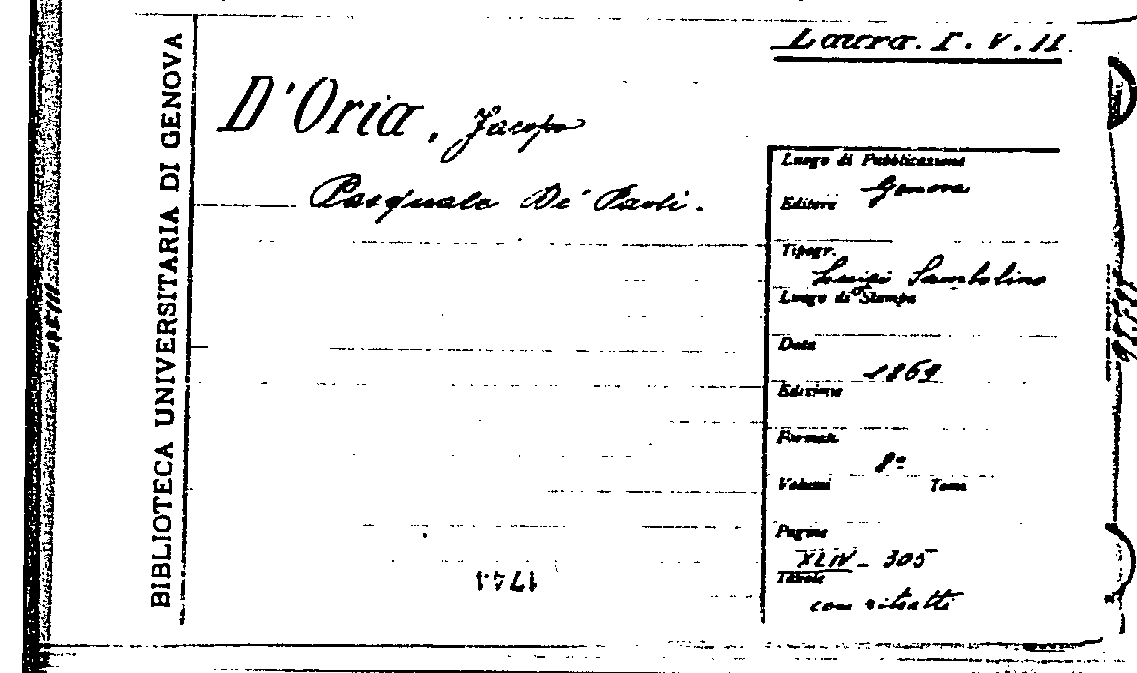 BIBLIOTECA UNIVERSITARIA DI GENOVA
Laura. I. V. 11.
D'Oria, Jacopo
Pasquale De' Paoli.
Luogo di Pubblicazione
Genova
Editore
Tipogr.
Luigi Sambolino
Luogo di Stampa
Data
1869
Edizione
Formato
8º
Volumi Tomi
Pagine
XLIV - 305
Tavole
con ritratti